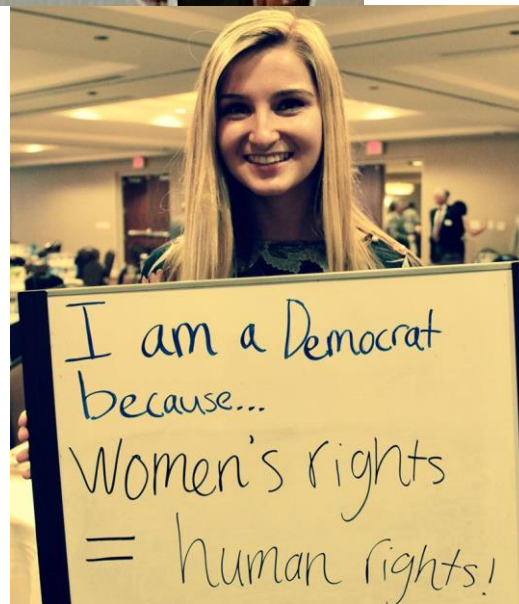 I am a Democrat
because...
Women's rights
= human rights!